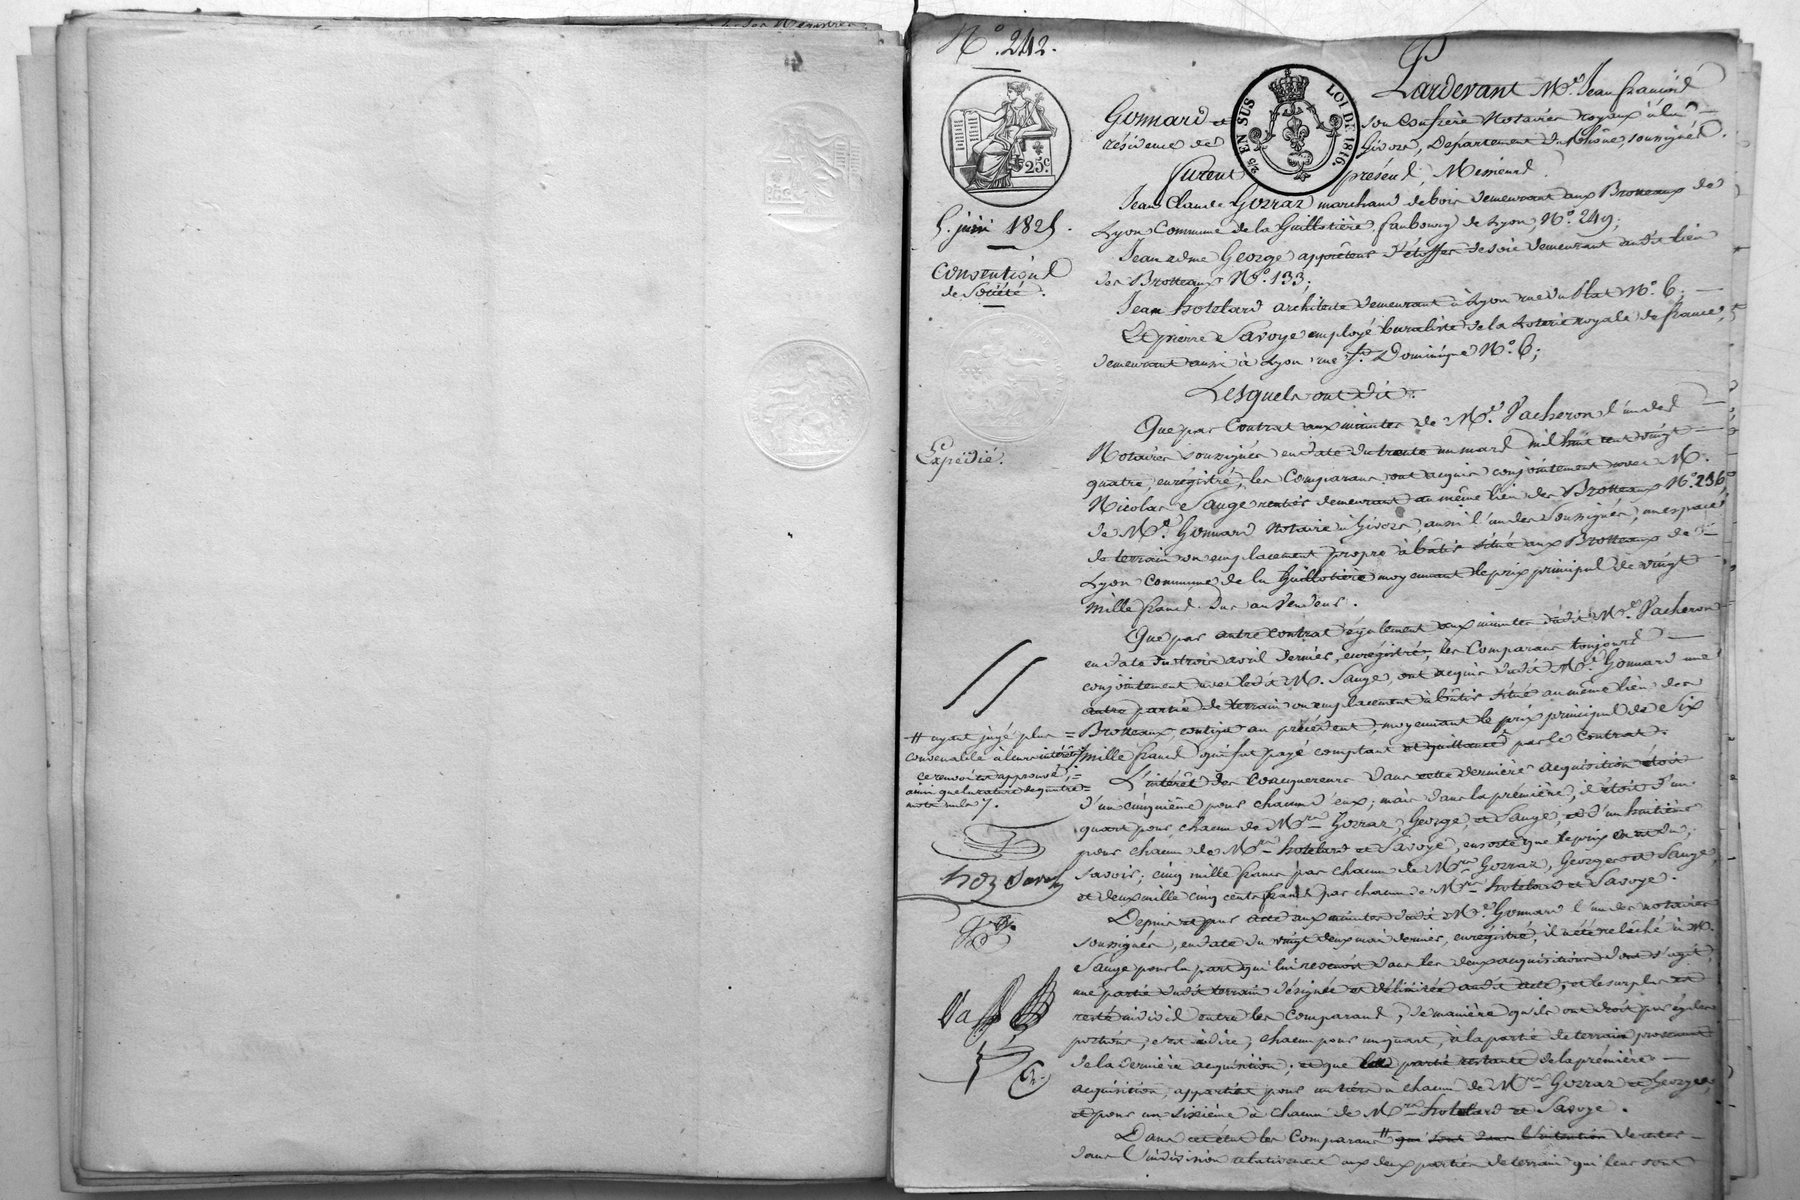 N.° 242.
Pardevant M.e Jean françois
Gonnard et son Confrère Notaires royaux à la
résidence de Givors, Département du Rhône, soussignés.
2/5 EN SUS
LOI DE 1816.
25c.
furent présens Messieurs
Jean Claude Gorraz marchand de bois demeurant aux Brotteaux de
Lyon Commune de la Guillotière, faubourg de Lyon, N.° 249;
5. juin 1825.
Jean edme George apprêteur d'étoffes de soie demeurant audit lien
des Brotteaux N.° 133;
Conventions
de Société.
Jean hotelard architecte demeurant à Lyon rue du Plat N.° 6;
Et pierre Savoye employé buraliste de la Loterie royale de france,
demeurant aussi à Lyon rue St. Dominique N.° 6;
Lesquels ont dit:
Que par Contrat aux minutes de M.e Vacheron l'un des
Expédié.
Notaires soussignés en date du trente un mars mil huit cent vingt
quatre, enregistré, les Comparans ont acquis conjointement avec M.
Nicolas Sauge rentier demeurant au même lieu des Brotteaux N.° 236,
de M.e Gonnard Notaire à Givors, aussi l'un des Soussignés, un espace
de terrain ou emplacement propre à bâtir situé aux Brotteaux de
Lyon Commune de la Guillotière moyennant le prix principal de vingt
mille francs dus au Vendeur.
Que par autre contrat également aux minutes dudit M.e Vacheron
en date du trois avril dernier, enregistré, les Comparans toujours
conjointement avec ledit M. Sauge, ont acquis dudit M.e Gonnard une
autre partie de terrain ou emplacement à bâtir situé au même lieu des
Brotteaux, contigu au précédent, moyennant le prix principal de Six
mille francs qui fut payé comptant et quittancé par le Contrat.
# ayant jugé plus
convenable à leurs intérêts
ce renvoi est approuvé,
ainsi que la rature de quatre
mots nuls.
L'intérêt des Coacquereurs dans cette dernière acquisition étoit
d'un cinquième pour chacun d'eux; mais dans la première, il étoit d'un
quart pour chacun de M.rs Gorraz, George, et Sauge, et d'un huitième
pour chacun de M.rs hotelard et Savoye, ensorte que le prix en est du,
savoir; cinq mille francs par chacun de M.rs Gorraz, George et Sauge,
et deux mille cinq cents francs par chacun de M.rs hotelard et Savoye.
Depuis et par acte aux minutes dudit M.e Gonnard l'un des notaires
soussignés, en date du vingt deux mai dernier, enregistré, il a été relâché à M.
Sauge pour la part qui lui revenoit dans les deux acquisitions dont s'agit,
une partie dudit terrain désignée et délimitée audit acte, et le surplus est
resté indivis entre les Comparans, de manière qu'ils ont droit par égales
portions, c'est à dire, chacun pour un quart, à la partie de terrain provenant
de la dernière acquisition; et que la partie restante de la première
acquisition, appartient pour un tiers à chacun de M.rs Gorraz et George,
et pour un sixième à chacun de M.rs hotelard et Savoye.
Dans cet état les Comparans # qui sont dans l'intention de rester
dans l'indivision relativement aux deux parties de terrain qui leur sont